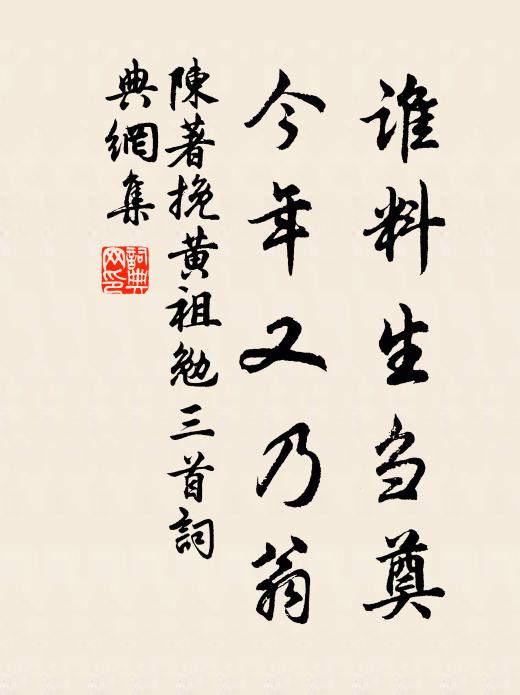 谁料生刍奠
今年又乃翁
陳著挽黄祖勉三首詞
典網集
詞典
网印